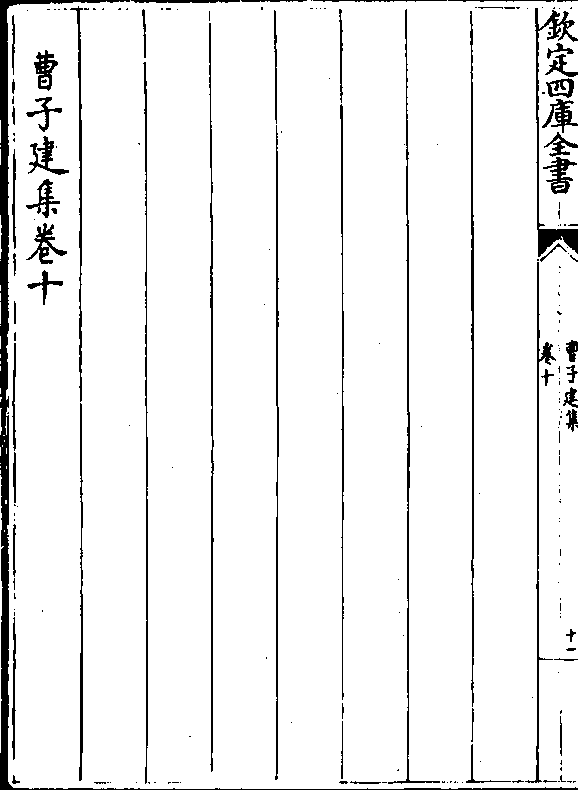 欽定四庫全書
曹子建集
卷十
十一
曹子建集卷十